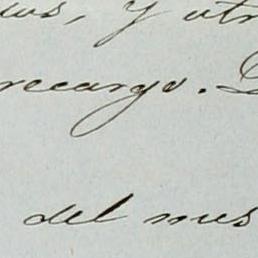 y otr
recargo.
del mes